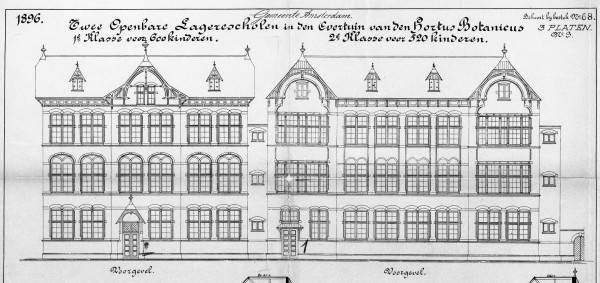 Gemeente Amsterdam.
1896.
Twee Openbare Lagerescholen in den Evertuin van den Hortus Botanicus
1e Klasse voor 600 kinderen.
2e Klasse voor 520 kinderen.
Behoort bij bestek No 68.
3 PLATEN.
No 3.
Voorgevel.
Voorgevel.